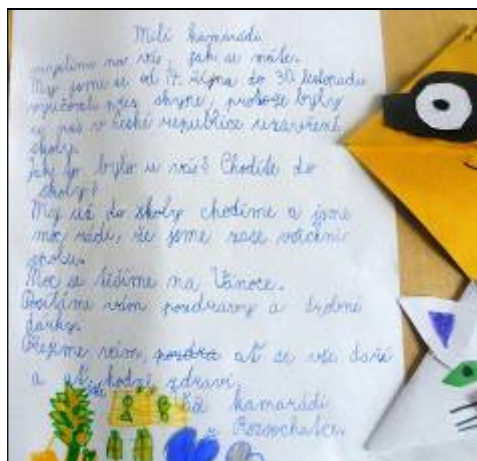 Milí kamarádi
myslíme na vás, jak se máte.
My jsme se od 14. října do 30. listopadu
vyučovali přes skype, protože byly
u nás v České republice uzavřené
školy.
Jak to bylo u vás? Chodíte do
školy?
My už do školy chodíme a jsme
moc rádi, že jsme zase všichni
spolu.
Moc se těšíme na Vánoce.
Posíláme vám pozdravy a drobné
dárky.
Přejeme vám, ať se vše daří
a ať jste hodně zdraví.
kamarádi
z Rozsochatce.